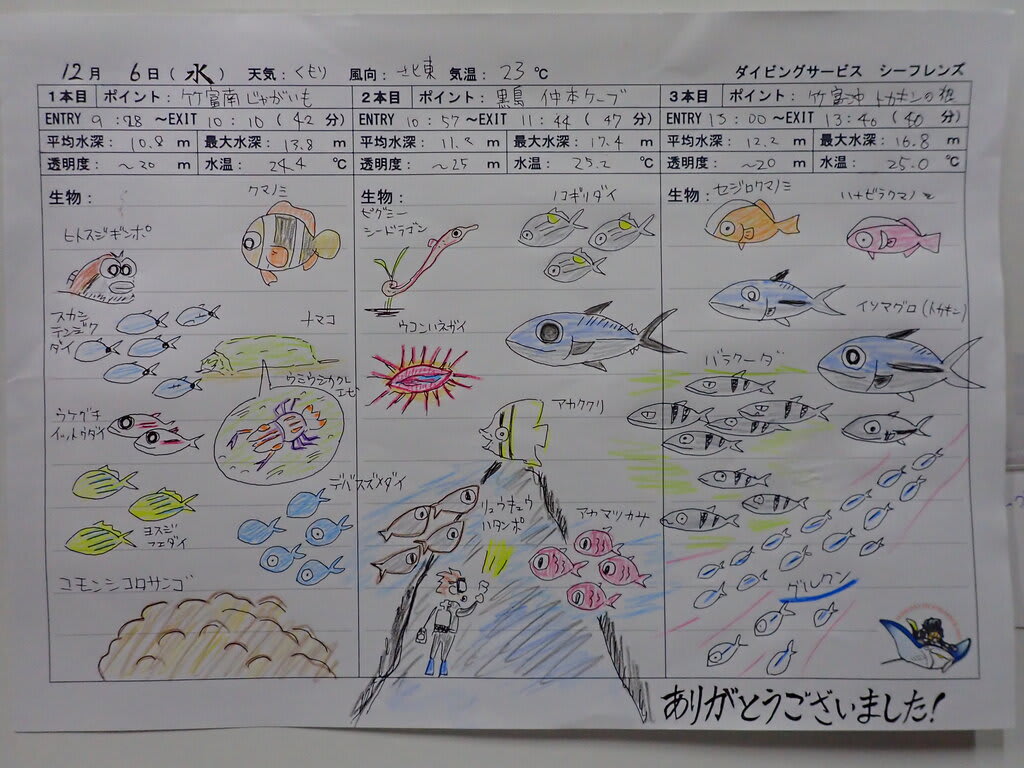 12月 6日(水) 天気:くもり 風向:北東 気温:23℃
ダイビングサービス シーフレンズ
1本目 ポイント:竹富南じゃがいも
ENTRY 9:28 ~EXIT 10:10 (42分)
平均水深:10.8m 最大水深:13.8m
透明度:~20m 水温:24.4℃
生物:
クマノミ
ヒトスジギンポ
スカシ
テンジク
ダイ
ナマコ
ウミウシカクレ
エビ
ウケグチ
イットウダイ
デバスズメダイ
ヨスジ
フエダイ
コモンシコロサンゴ
2本目 ポイント:黒島 仲本ケーブ
ENTRY 10:57 ~EXIT 11:44 (47分)
平均水深: m 最大水深:17.4m
透明度:~25m 水温:25.2℃
生物:
ノコギリダイ
ピグミー
シードラゴン
ウコンハネガイ
アカククリ
リュウキュウ
ハタンポ
アカマツカサ
3本目 ポイント:竹富沖 トカキンの根
ENTRY 13:00 ~EXIT 13:40 (40分)
平均水深:12.2m 最大水深:16.8m
透明度:~20m 水温:25.0℃
生物:
セジロクマノミ
ハナビラクマノミ
イソマグロ(トカキン)
バラクーダ
グルクン
ありがとうございました!